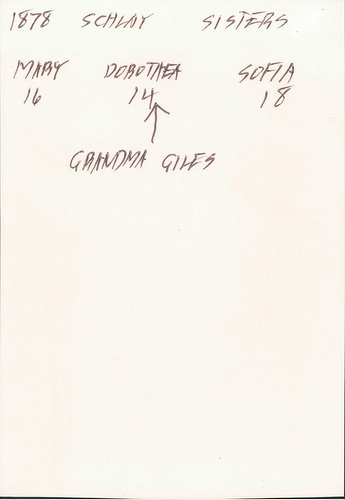 1878 SCHLAY SISTERS
MARY DOROTHEA SOFIA
16 14 18
GRANDMA GILES